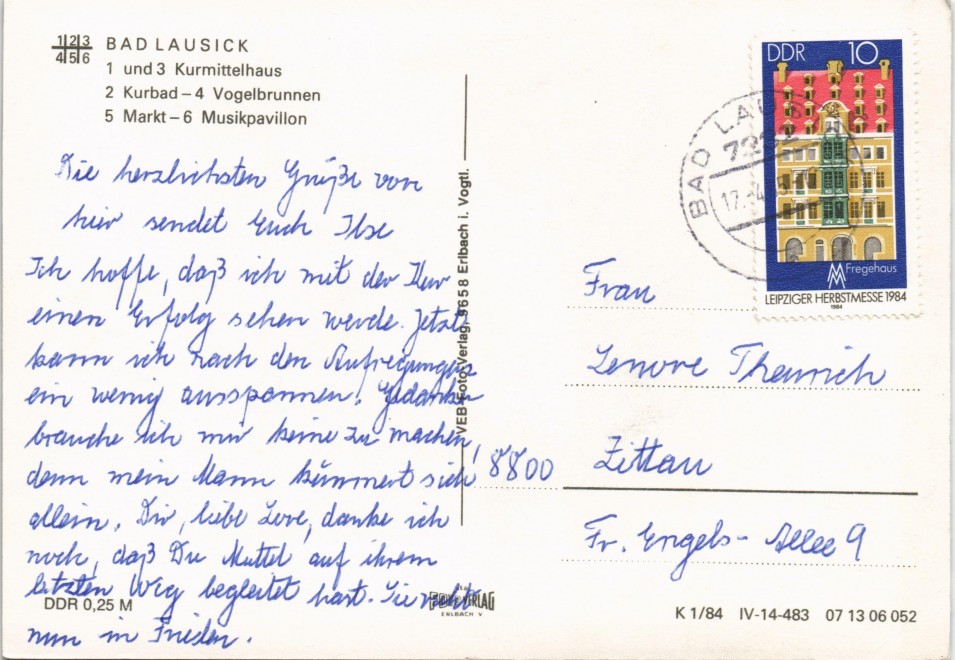 1 2 3
4 5 6
BAD LAUSICK
1 und 3 Kurmittelhaus
2 Kurbad – 4 Vogelbrunnen
5 Markt – 6 Musikpavillon
Die herzlichsten Grüße von
hier sendet Euch Ilse
Ich hoffe, daß ich mit der Kur
einen Erfolg sehen werde. Jetzt
kann ich nach den Aufregungen
ein wenig ausspannen. Gedanken
brauche ich mir keine zu machen,
denn mein Mann kümmert sich
allein. Dir, liebe Lore, danke ich
noch, daß Du Muttel auf ihrem
letzten Weg begleitet hast. Sie ruht
nun in Frieden.
DDR 0,25 M
VEB Foto-Verlag, 9658 Erlbach i. Vogtl.
VERLAG
ERLBACH V
DDR 10
Fregehaus
LEIPZIGER HERBSTMESSE 1984
1984
BAD LAUSICK
Frau
Lenore
8800 Zittau
Fr. Engels-Allee 9
K 1/84 IV-14-483 07 13 06 052